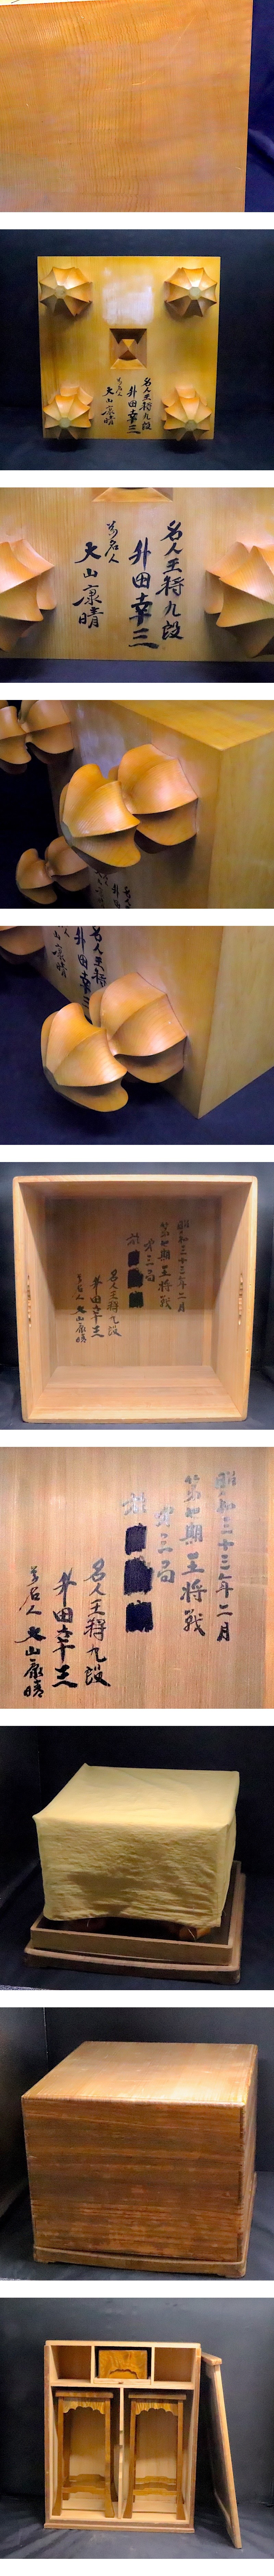 名人王将九段
升田幸三
前名人
大山康晴
名人王将九段
升田幸三
前名人
大山康晴
昭和三十三年二月
第七期王将戦
第三局
名人王将九段
升田幸三
前名人
大山康晴
昭和三十三年二月
第七期王将戦
第三局
名人王将九段
升田幸三
前名人
大山康晴